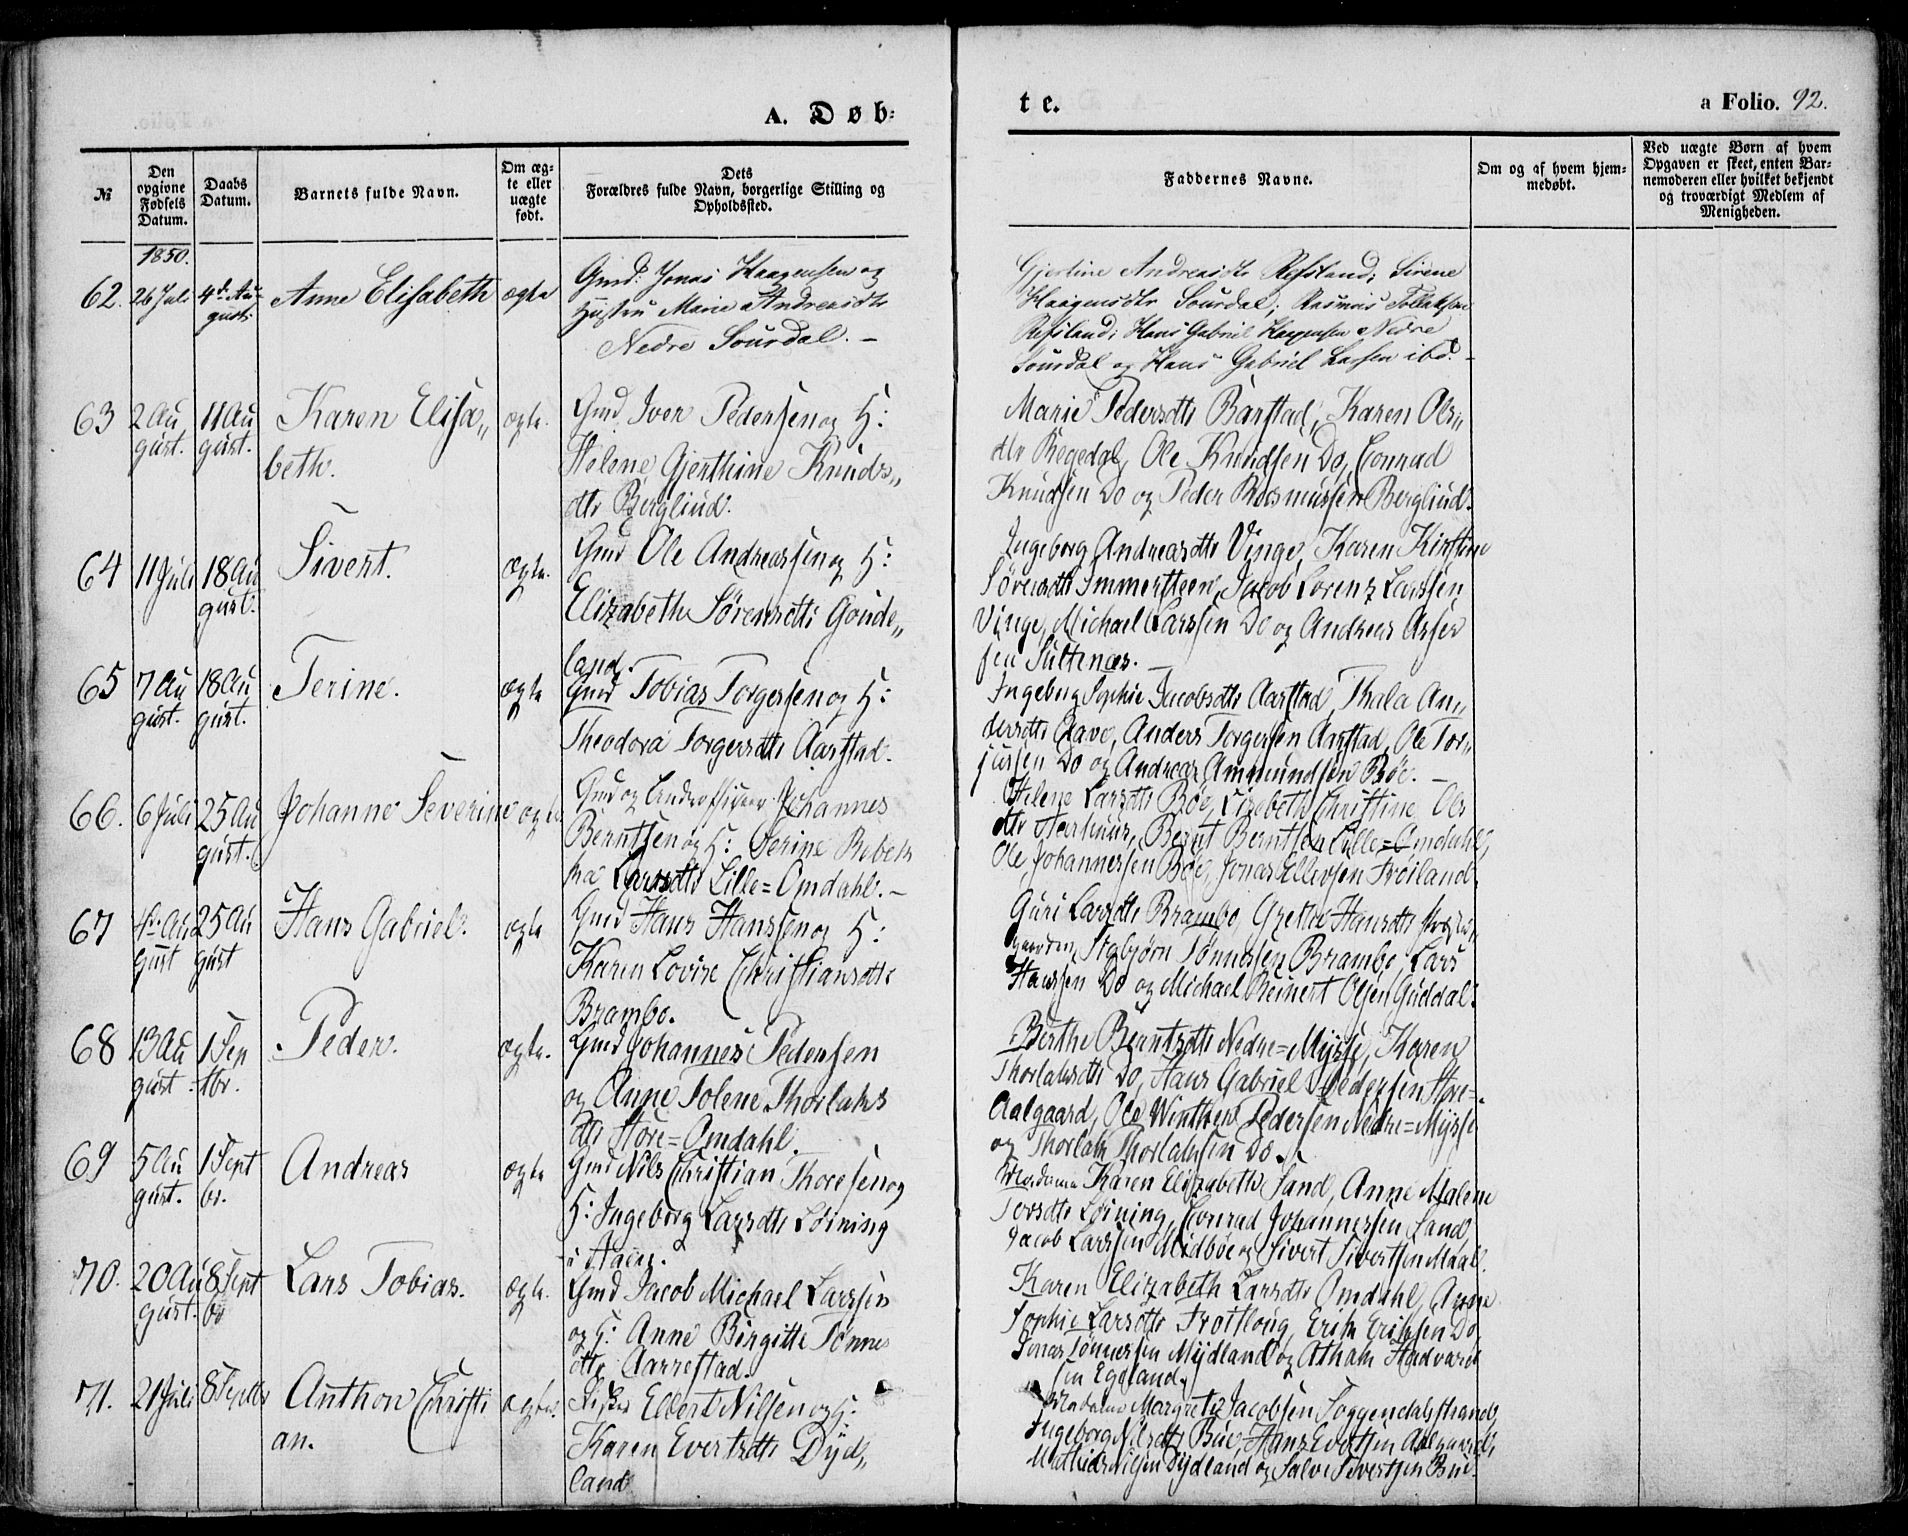 A. Døb=
te.
a Folio. 92.
№
Den opgivne Fødsels Datum.
Daabs Datum.
Barnets fulde Navn.
Om ægte eller uægte født.
Dets Forældres fulde Navn, borgerlige Stilling og Opholdssted.
Faddernes Navne.
Om og af hvem hjemmedøbt.
Ved uægte Børn af hvem Opgaven er skeet, enten Barnemoderen eller hvilket bekjendt og troværdigt Medlem af Menigheden.
1850.
62. 26 Juli 4de August Anne Elisabeth ægte
Gmd. Jonas Haagensen og
Hustru Marie Andreasdtr
Nedre Sourdal. –
Gjertine Andreasdtr Refsland, Sirene
Haagensdtr Sourdal, Rasmus Tollaksen
Refsland, Hans Gabriel Haagensen Nedre
Sourdal og Hans Gabriel Lassen ibd. –
63 2 August. 11 August. Karen Elisa„beth. ægte.
Gmd. Iver Pedersen og H:
Helene Gjerthine Knuds„
dtr Bergliud.
Marie Pedersdtr Barstad, Karen Ols„
dtr Regedal, Ole Knudsen Do, Conrad
Knudsen Do og Peder Rasmussen Bergliud.
64 11 Juli 18 August. Sivert. ægte.
Gmd Ole Andreassen og H:
Elizabeth Sørensdtr Goude„
land.
Ingeborg Andreasdtr Vinge, Karen Kirstine
Sørensdtr Immersteen, Jacob Lorenz Larssen
Vinge, Michael Larssen Do og Andreas Asser
sen Sultenæs. –
65 7 August. 18 August. Terine. ægte
Gmd Tobias Torgersen og H:
Theodora Torgersdtr Aarstad.
Ingeborg Sophie Jacobsdtr Aarstad, Thala An„
dersdtr Clave, Anders Torgersen Aarstad, Ole Tor„
jussen Do og Andreas Ammundsen Bøe. –
66. 6 Juli 25 August. Johanne Severine ægte
Gmd og Johannes
Berntsen og H: Serine Rebek
ka Larsdtr Lille=Omdahl. –
Helene Larsdtr Bøe, Lizebeth Christine Ols
dtr Bernt Berntsen Lille=Omdahl,
Ole Johannessen Bøe, Jonas Ellevsen Frøiland.
67 4de August 25 August Hans Gabriel. ægte
Gmd Hans Hanssen og H:
Karen Lovise Christiansdtr
Brambo.
Guri Larsdtr Brambo, Grethe Hansdtr
Asbjørn Tønnessen Brambo, Lars
Hanssen Do og Michael Reinert Olsen Guddal.
68 13 August 1 Septbr. Peder. ægte.
Gmd Johannes Pedersen
og Anne Tolene Thorlaks
dtr Store=Omdahl.
Berthe Berntsdtr Nedre=Mysse, Karen
Thorlaksdtr Do, Hans Gabriel Pedersen Store=
Aalgaard, Ole Winther Pedersen Nedre=Mysse
og Thorlak Thorlaksen Do.
69 5 August. 1 Septbr. Andreas ægte
Gmd Nils Christian Thoresen og
H: Ingeborg Larsdtr Løining
i Aaen.
Madame Karen Elizabeth Sand, Anne Malene
Torsdtr Løining, Conrad Johannessen Sand,
Jacob Larssen Midbøe og Sivert Sivertsen Maal.
70. 20 August. 8 Septbr Lars Tobias. ægte.
Gmd Jacob Michael Larssen
og H: Anne Birgitte Tønnes
dtr Aarrestad.
Karen Elizabeth Larsdtr Omdahl, Anne
Sophie Larsdtr Frøitlong, Erik Eriksen Do
Jonas Tønnessen Mydland og Atham Hadvard
sen Egeland.
71. 21 Juli 8 Septbr Anthon Christian. ægte.
Fisker Ellert Nilsen og H:
Karen Evertsdtr Dyd„
land
Madame Margrete Jacobsen Soggendalsstrand,
Ingeborg Nilsdtr Bue, Hans Evertsen Aalgaard,
Mathias Nilsen Dydland og Salve Sivertsen Bue.